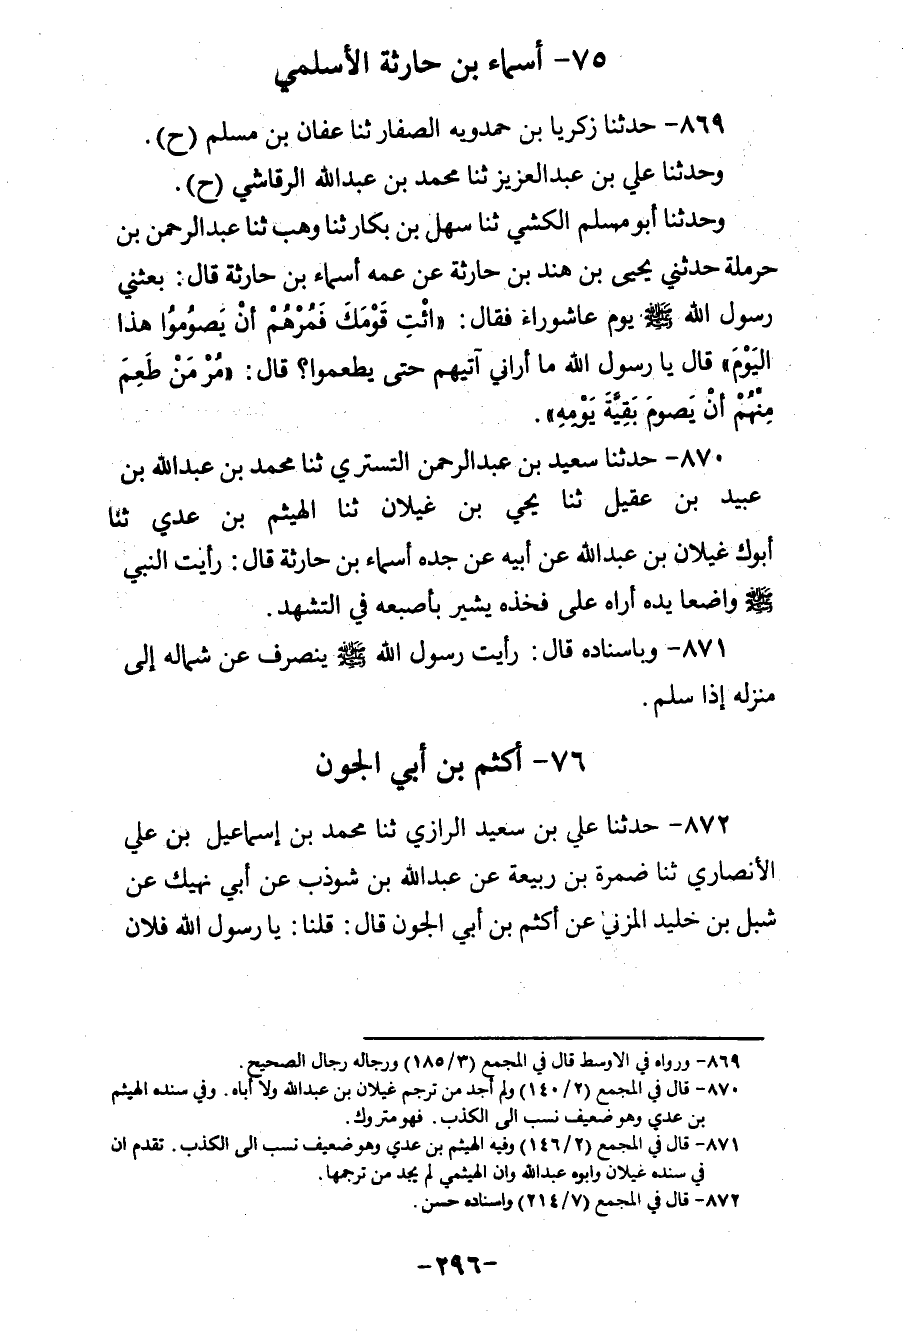 ٧٥- أسماء بن حارثة الأسلمي
٨٦٩- حدثنا زكريا بن حمدويه الصفار ثنا عفان بن مسلم (ح).
وحدثنا علي بن عبدالعزيز ثنا محمد بن عبدالله الرقاشي (ح).
وحدثنا أبو مسلم الكشي ثنا سهل بن بكار ثنا وهب ثنا عبدالرحمن بن
حرملة حدثني يحيى بن هند بن حارثة عن عمه أسماء بن حارثة قال: بعثني
رسول الله ﷺ يوم عاشوراء فقال: «ائْتِ قَوْمَكَ فَمُرْهُمْ أنْ يَصوُموُا هذا
اليَوْمَ» قال يا رسول الله ما أراني آتيهم حتى يطعموا؟ قال: «مُرْ مَنْ طَعِمَ
مِنْهُمْ أنْ يَصومَ بَقِيَّةَ يَوْمِهِ».
٨٧٠- حدثنا سعيد بن عبدالرحمن التستري ثنا محمد بن عبدالله بن
عبيد بن عقيل ثنا يحي بن غيلان ثنا الهيثم بن عدي ثنا
أبوك غيلان بن عبدالله عن أبيه عن جده أسماء بن حارثة قال: رأيت النبي
ﷺ واضعا يده أراه على فخذه يشير بأصبعه في التشهد.
٨٧١- وباسناده قال: رأيت رسول الله ﷺ ينصرف عن شماله إلى
منزله إذا سلم.
٧٦- أكثم بن أبي الجون
٨٧٢- حدثنا علي بن سعيد الرازي ثنا محمد بن إسماعيل بن علي
الأنصاري ثنا ضمرة بن ربيعة عن عبدالله بن شوذب عن أبي نهيك عن
شبل بن خليد المزني عن أكثم بن أبي الجون قال: قلنا: يا رسول الله فلان
٨٦٩- ورواه في الاوسط قال في المجمع (١٨٥/٣) ورجاله رجال الصحيح.
٨٧٠- قال في المجمع (١٤٠/٢) ولم أجد من ترجم غيلان بن عبدالله ولا أباه. وفي سنده الهيثم
بن عدي وهو ضعيف نسب الى الكذب. فهو متروك.
٨٧١- قال في المجمع (١٤٦/٢) وفيه الهيثم بن عدي وهو ضعيف نسب الى الكذب. تقدم ان
في سنده غيلان وابوه عبدالله وان الهيثمي لم يجد من ترجمها.
٨٧٢- قال في المجمع (٢١٤/٧) واسناده حسن.
-٢٩٦-